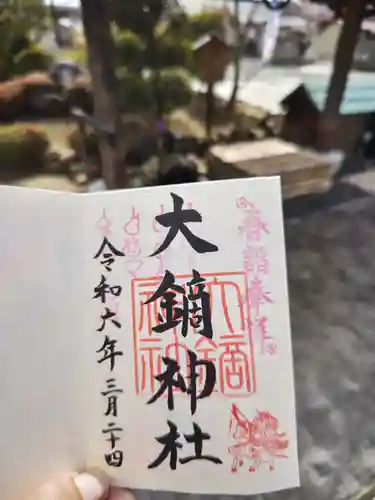 春詣奉拝
大鏑神社
大鏑
神社
令和六年三月二十四